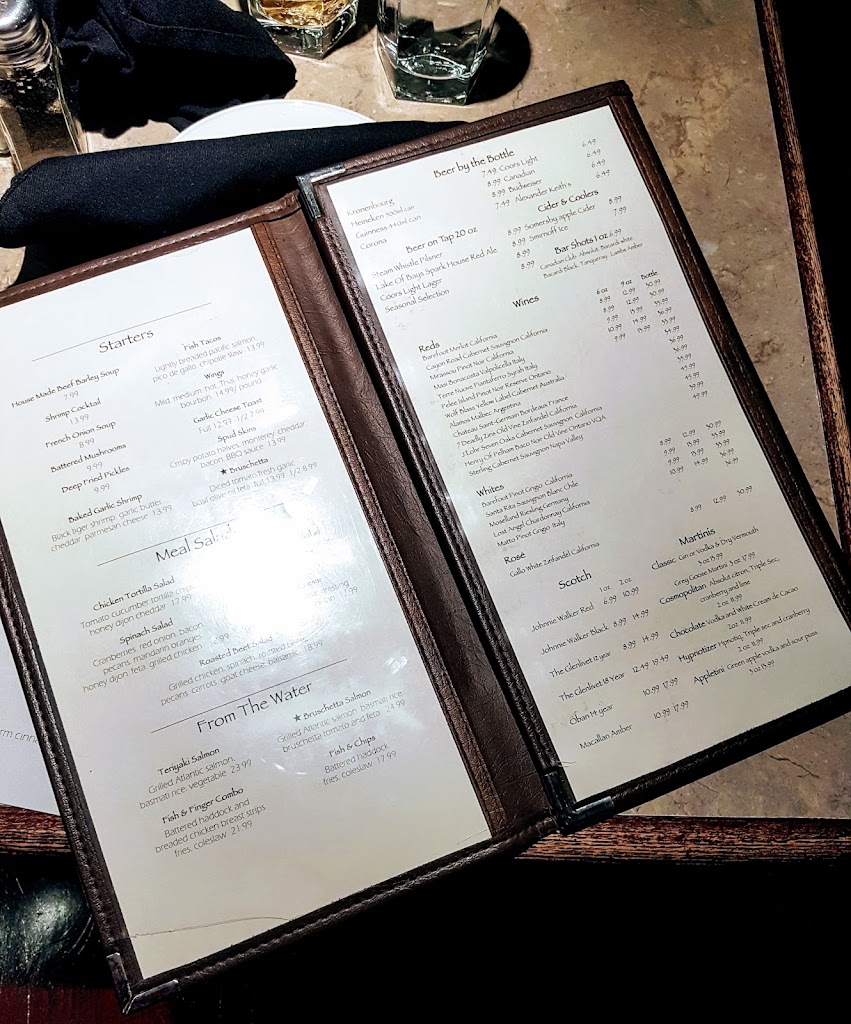 Starters
House Made Beef Barley Soup
7.99
Shrimp Cocktail
13.99
French Onion Soup
8.99
Battered Mushrooms
9.99
Deep Fried Pickles
9.99
Baked Garlic Shrimp
Black tiger shrimp, garlic butter
cheddar, parmesan cheese 13.99
Fish Tacos
Lightly breaded pacific salmon
pico de gallo, chipotle slaw 13.99
Wings
Mild, medium, hot, Thai, honey garlic
bourbon 14.99/ pound
Garlic Cheese Toast
Full 12.99 1/2 7.99
Spud Skins
Crispy potato halves, monterey, cheddar
bacon, BBQ sauce 13.99
★ Bruschetta
Diced tomato fresh garlic
olive oil feta full 13.99 1/2 8.99
Meal Salad
Chicken Tortilla Salad
Tomato cucumber tortilla
honey dijon cheddar 17.99
Spinach Salad
Cranberries, red onion, bacon
pecans, mandarin oranges
honey dijon, feta, grilled chicken
Roasted Beet Salad
Grilled chicken, spinach, roasted
pecans, carrots, goat cheese, balsamic 18.99
From The Water
Teriyaki Salmon
Grilled Atlantic salmon,
basmati rice, vegetable 23.99
Fish & Finger Combo
Battered haddock and
breaded chicken breast strips
fries, coleslaw 21.99
★ Bruschetta Salmon
Grilled Atlantic salmon, basmati rice
bruschetta tomato and feta 24.99
Fish & Chips
Battered haddock
fries, coleslaw 17.99
Beer by the Bottle
Kronenbourg 7.49
Heineken 500ml can 8.99
Guinness 440ml can 8.99
Corona 7.49
Coors Light 6.49
Canadian 6.49
Budweiser 6.49
Alexander Keith's 6.49
Beer on Tap 20 oz
Steam Whistle Pilsner 8.99
Lake Of Bays Spark House Red Ale 8.99
Coors Light Lager 8.99
Seasonal Selection 8.99
Cider & Coolers
Somersby apple Cider 8.99
Smirnoff Ice 7.99
Bar Shots 1 oz 6.99
Canadian Club, Absolut, Bacardi white,
Bacardi Black, Tanqueray, Lambs Amber
Wines
6 oz 9 oz Bottle
Reds
Barefoot Merlot California
Canyon Road Cabernet Sauvignon California
Mirassou Pinot Noir California
Masi Bonacosta Valpolicella Italy
Terre Nuove Pantaferro Syrah Italy
Pelee Island Pinot Noir Reserve Ontario
Wolf Blass Yellow Label Cabernet Australia
Alamos Malbec Argentina
Chateau Saint-Germain Bordeaux France
7 Deadly Zins Old Vine Zinfandel California
J Lohr Seven Oaks Cabernet Sauvignon California
Henry Of Pelham Baco Noir Old Vine Ontario VQA
Sterling Cabernet Sauvignon Napa Valley
Whites
Barefoot Pinot Grigio California 8.99 12.99 30.99
Santa Rita Sauvignon Blanc Chile
Moselland Riesling Germany
Lost Angel Chardonnay California
Matto Pinot Grigio Italy
Rosé
Gallo White Zinfandel California 8.99 12.99 30.99
Scotch
1 oz 2 oz
Johnnie Walker Red 6.99 10.99
Johnnie Walker Black 8.99 14.99
The Glenlivet 12 year 8.99 14.99
The Glenlivet 18 Year 12.49 19.49
Oban 14 year 10.99 17.99
Macallan Amber 10.99 17.99
Martinis
Classic Gin or Vodka & Dry Vermouth
3 oz 13.99
Grey Goose Martini 3 oz 17.99
Cosmopolitan Absolut citron, Triple Sec,
cranberry and lime
2 oz 11.99
Chocolate Vodka and White Creme de Cacao
2 oz 11.99
Hypnotizer Hpnotiq, Triple sec and cranberry
2 oz 11.99
Appletini Green apple vodka and sour puss
3 oz 13.99